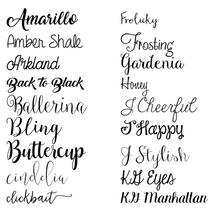 Amarillo
Amber Shale
Arkland
Back to Black
Ballerina
Bling
Buttercup
cindelia
clickbait
Frolicky
Frosting
Gardenia
Honey
I Cheerful
I Happy
I Stylish
KG Eyes
KG Manhattan